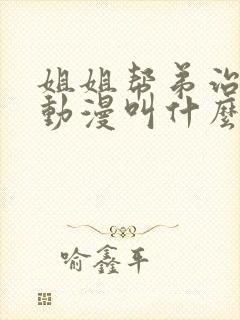 姐姐帮弟治
動漫叫什麼
喻鑫平